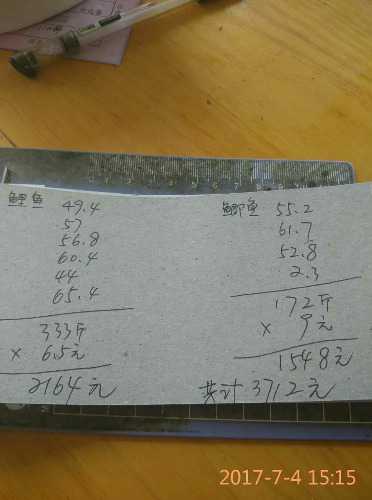 鲤鱼 49.4
57
56.8
60.4
44
65.4
333斤
× 6.5元
2164元
鲫鱼 55.2
61.7
52.8
2.3
172斤
× 9元
1548元
共计3712元
2017-7-4 15:15